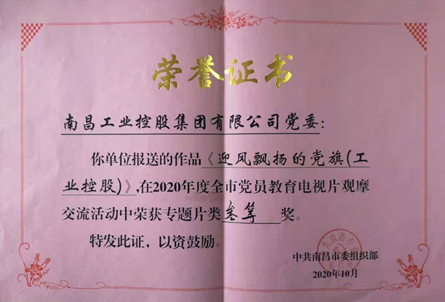 荣誉证书
南昌工业控股集团有限公司党委：
你单位报送的作品《迎风飘扬的党旗(工
业控股)》，在2020年度全市党员教育电视片观摩
交流活动中荣获专题片类叁等奖。
特发此证，以资鼓励。
中共南昌市委组织部
2020年10月